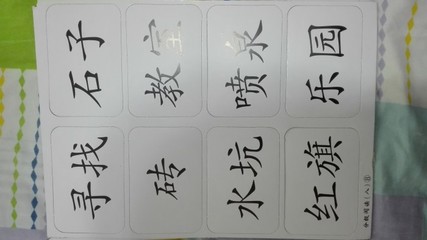 寻找 石子
砖 教室
水坑 喷泉
红旗 乐园